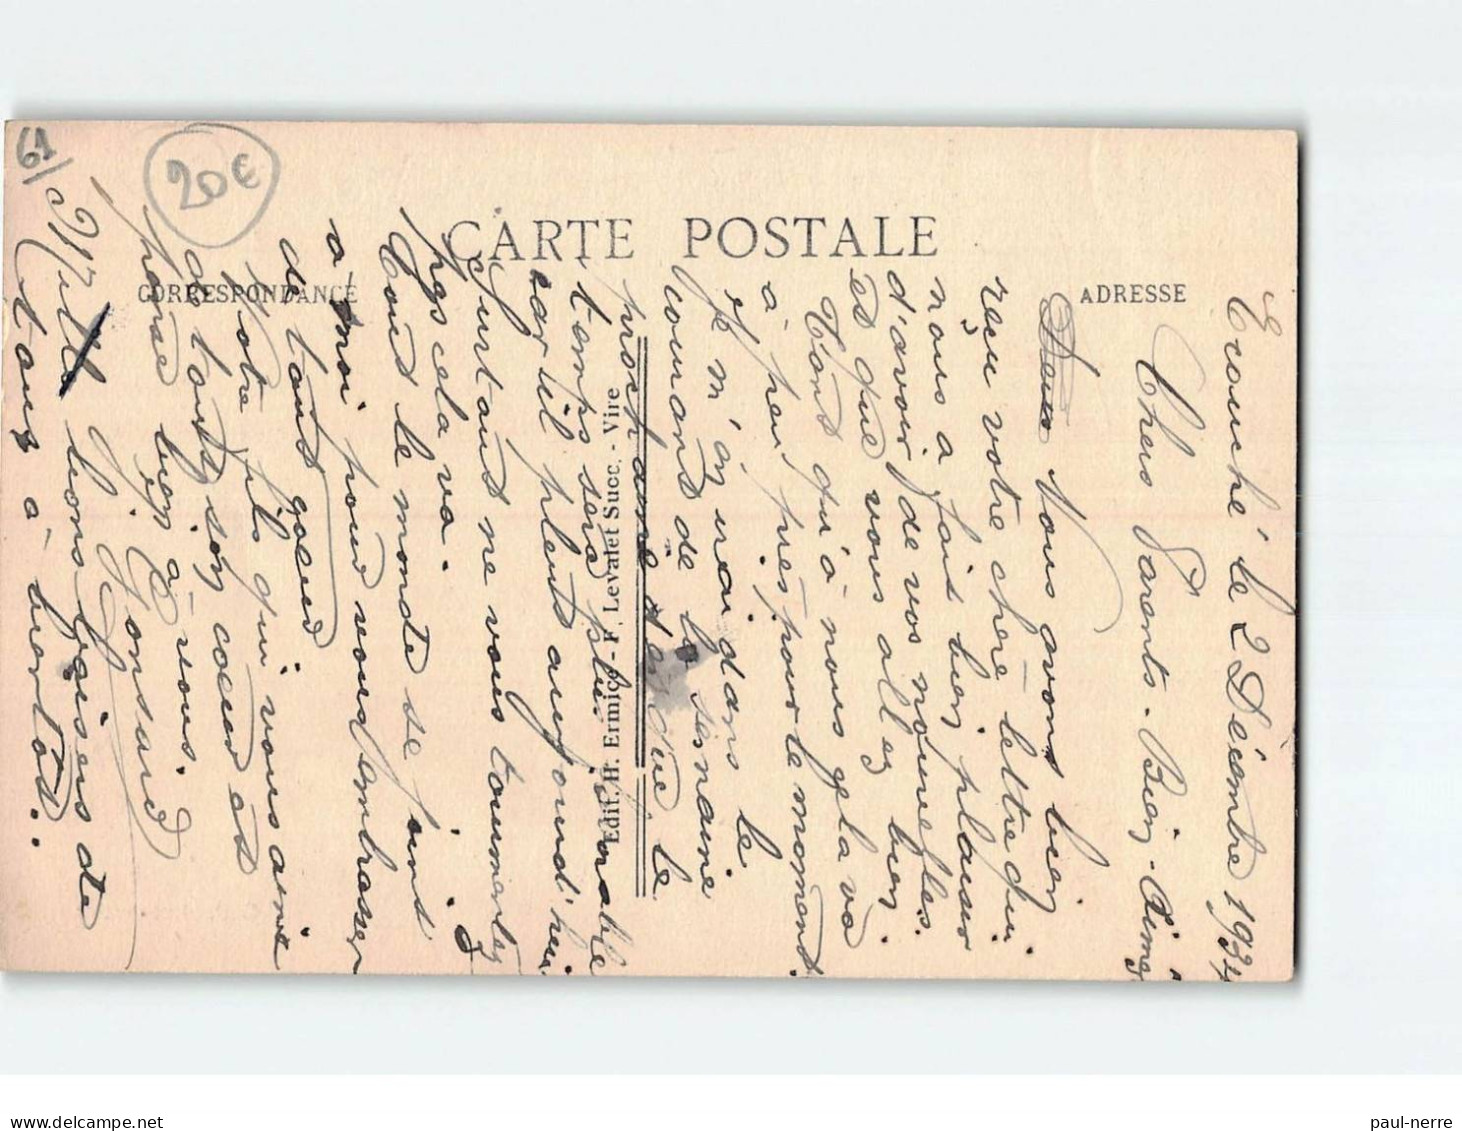 61
20€
CARTE POSTALE
CORRESPONDANCE
ADRESSE
Edit. H. Ermice - F. Levalet Succ. - Vire
Ecouché le 2 Décembre 1934
Chers Parents - Bien - Aimé
Nous avons bien
reçu votre chère lettre qui
nous a fait bien plaisir
d'avoir de vos nouvelles.
et que vous allez bien.
Tant qu'à nous cela va
à peu près pour le moment
Je m'en irai dans le
courand de la semaine
prochaine que le
temps sera plu
car il pleut aujourd'hui
Surtout ne vous tourmentez
pas cela va.
Tout le monde se joint
a moi pour vous embrasser
de tout coeur
Votre fils qui vous aime
de tout son coeur et
pense bien à vous.
Mille bons baisers de
tous à bientôt..
paul-nerre